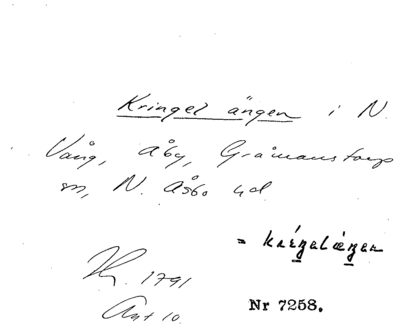 Kringel ängen i N.
Vång, Åby, Gråmanstorps
sn, N. Åsbo hd
= kréŋelæŋen
1791
Akt 10
Nr 7258.